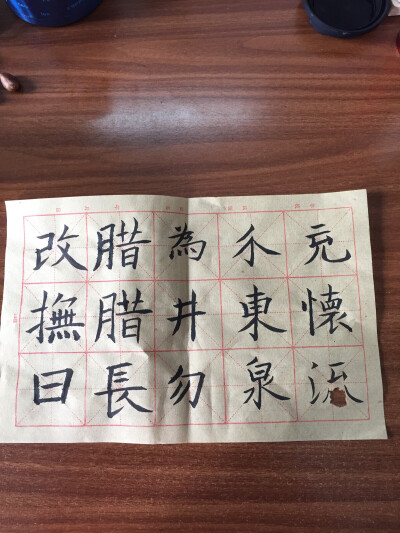 充懷流
尒東泉
為井勿
腊腊長
改撫曰